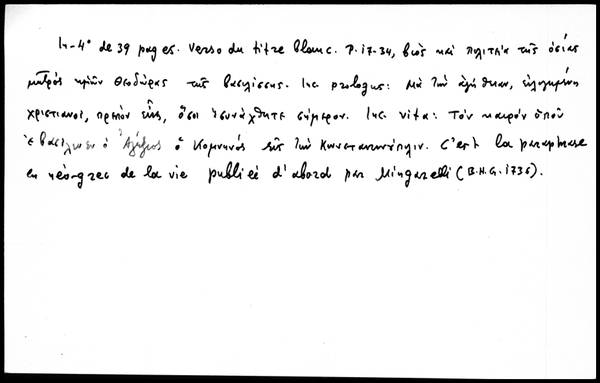 In-4° de 39 pages. Verso du titre blanc. P. 17-34, βιος καὶ πολιτεία τῆς ὁσίας
μητρὸς ἡμῶν Θεοδώρας τῆς βασιλίσσης. Inc. prologus: Μὰ τὴν ἀλήθειαν, εὐλογημένοι
χριστιανοί, πρέπον εἶνε, ὅσοι ἐσυνάχθητε σήμερον. Inc. vita: Τὸν καιρὸν ὁποῦ
ἐβασίλευεν ὁ Ἀλέξιος ὁ Κομνηνὸς εἰς τὴν Κωνσταντινούπολιν. C'est la paraphrase
en néo-grec de la vie publiée d'abord par Mingarelli (B.H.G. 1736).